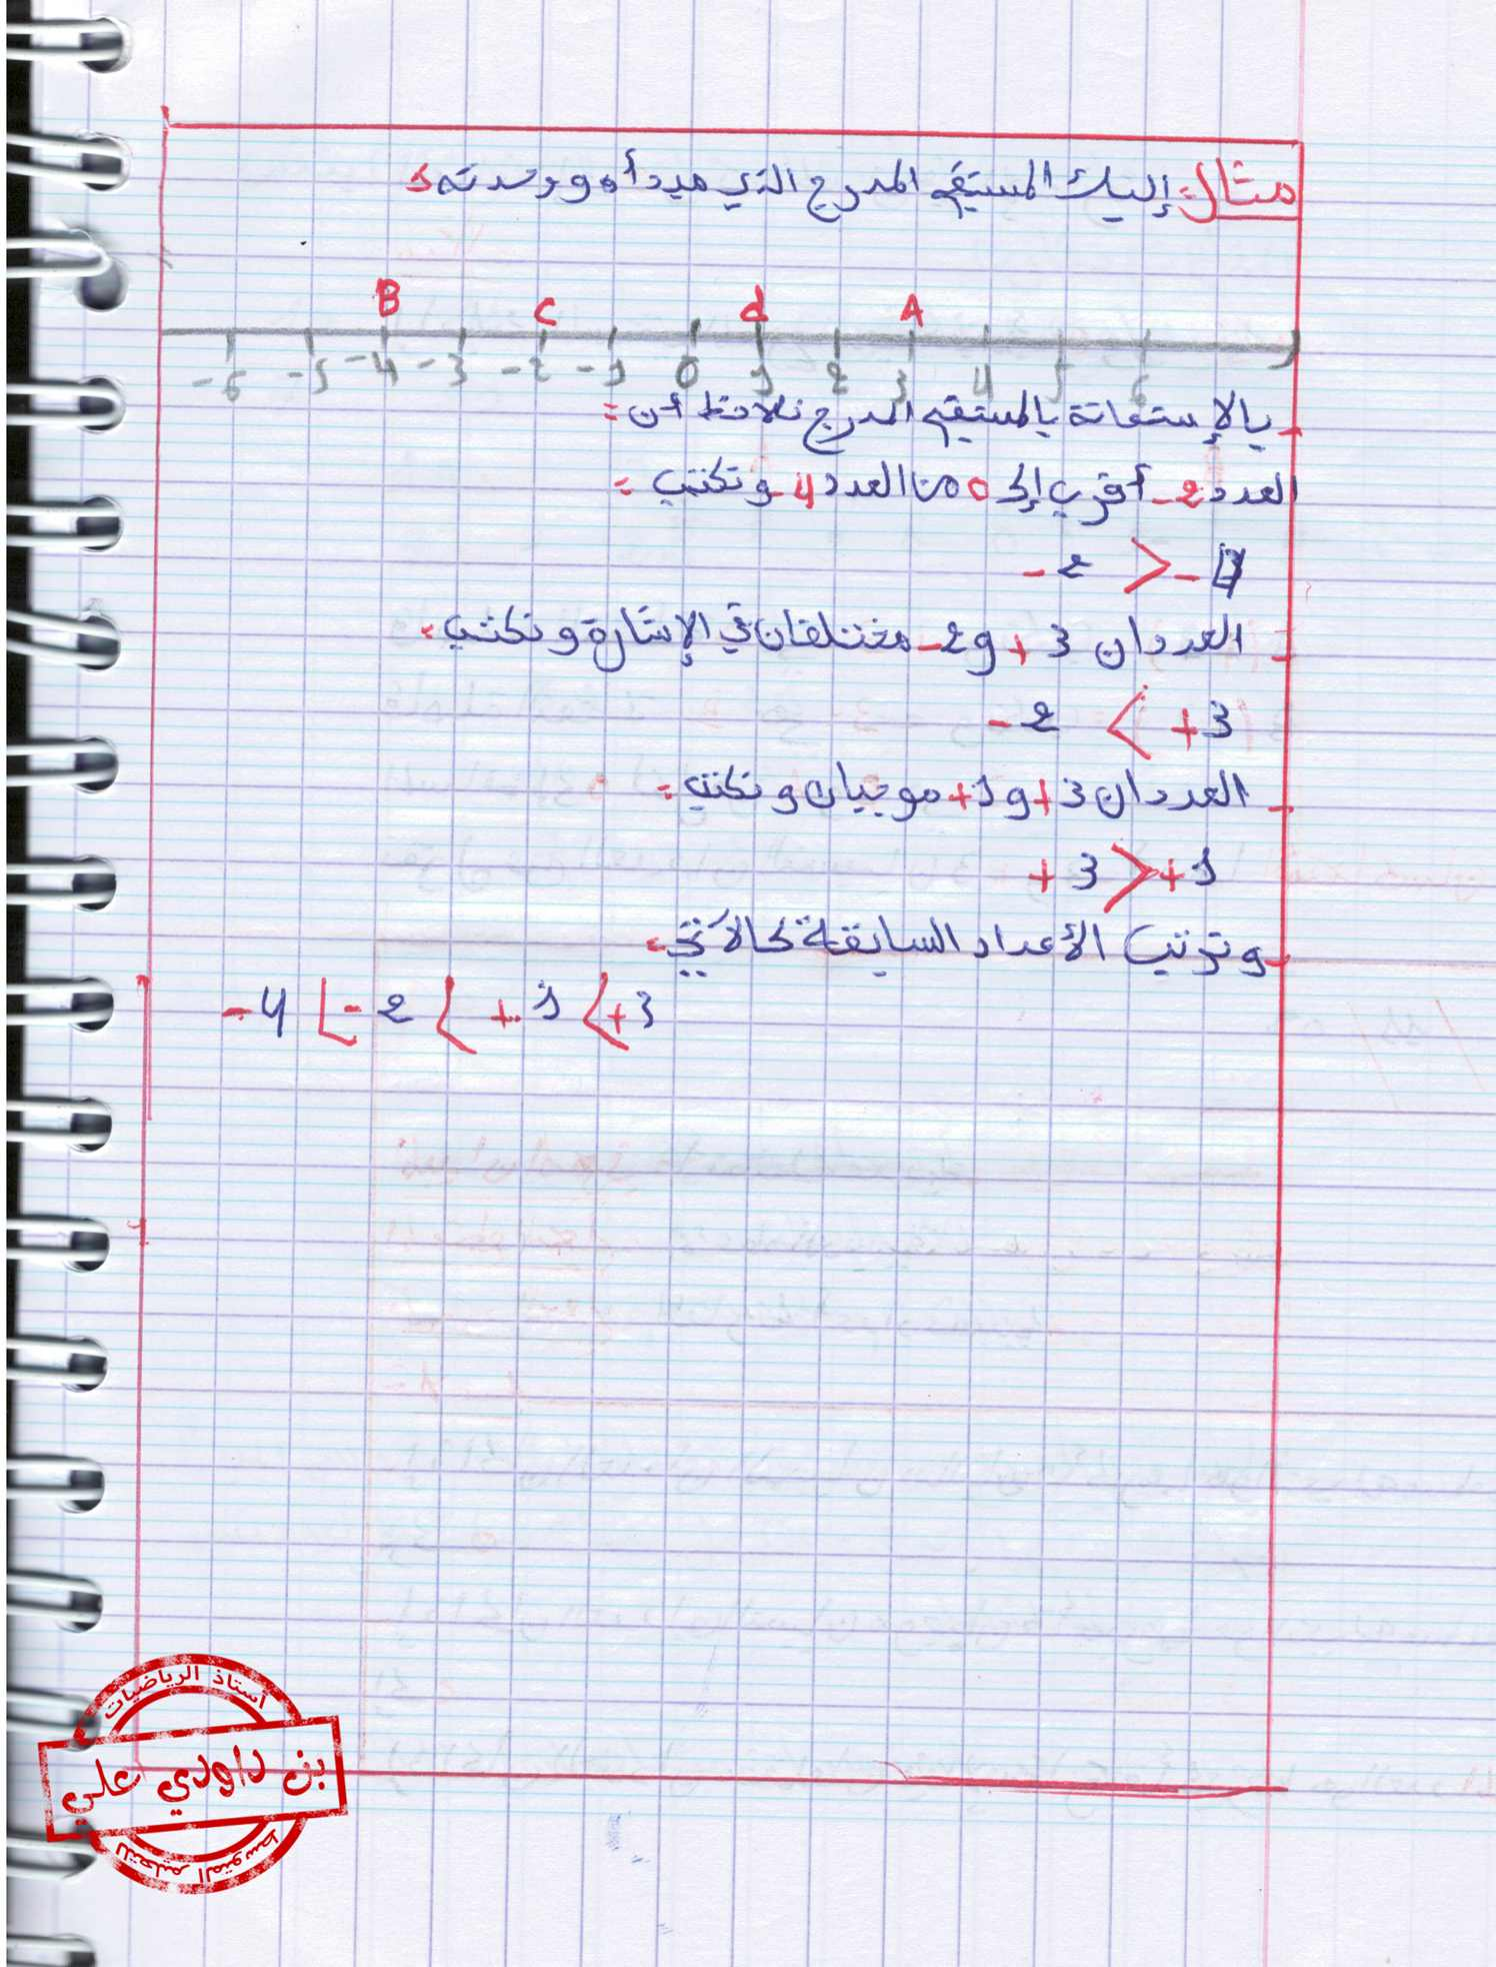 مثال: إليك المستقيم المدرج الذي مبدأه و وحدته
B C d A
-6 -5 -4 -3 -2 -1 0 1 2 3 4 5 6
- بالإستعانة بالمستقيم المدرج نلاحظ أن:
العدد -2 أقرب إلى 0 من العدد -4 و نكتب:
-2 > -
- العددان +3 و -2 مختلفان في الإشارة و نكتب:
-2 < +3
- العددان +3 و +1 موجبان و نكتب:
+3 > +1
- و ترتب الأعداد السابقة كالآتي:
-4 < -2 < +1 < +3
أستاذ الرياضيات
بن داودي علي
للتعليم المتوسط